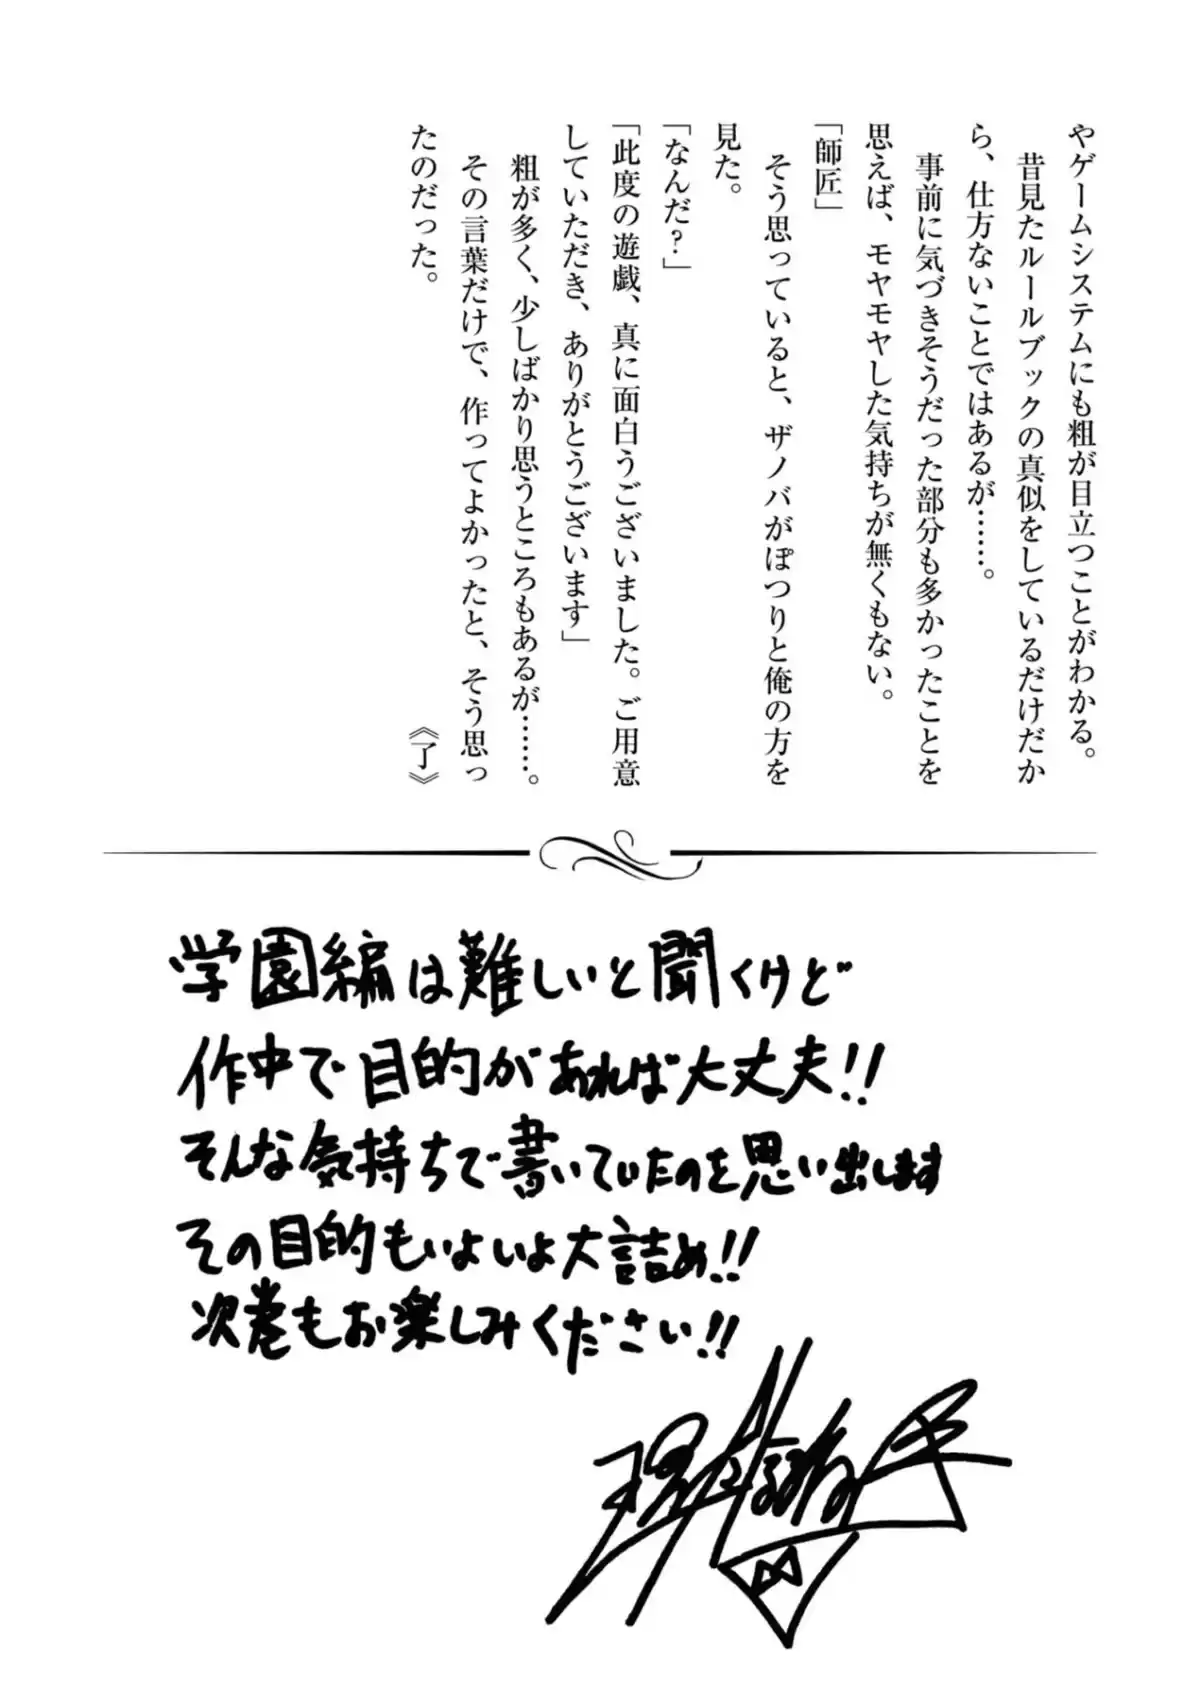 やゲームシステムにも粗が目立つことがわかる。
昔見たルールブックの真似をしているだけだか
ら、仕方ないことではあるが……。
事前に気づきそうだった部分も多かったことを
思えば、モヤモヤした気持ちが無くもない。
「師匠」
そう思っていると、ザノバがぽつりと俺の方を
見た。
「なんだ？」
「此度の遊戯、真に面白うございました。ご用意
していただき、ありがとうございます」
粗が多く、少しばかり思うところもあるが……。
その言葉だけで、作ってよかったと、そう思っ
たのだった。
《了》
学園編は難しいと聞くけど
作中で目的があれば大丈夫!!
そんな気持ちで書いていたのを思い出します
その目的もいよいよ大詰め!!
次巻もお楽しみください!!